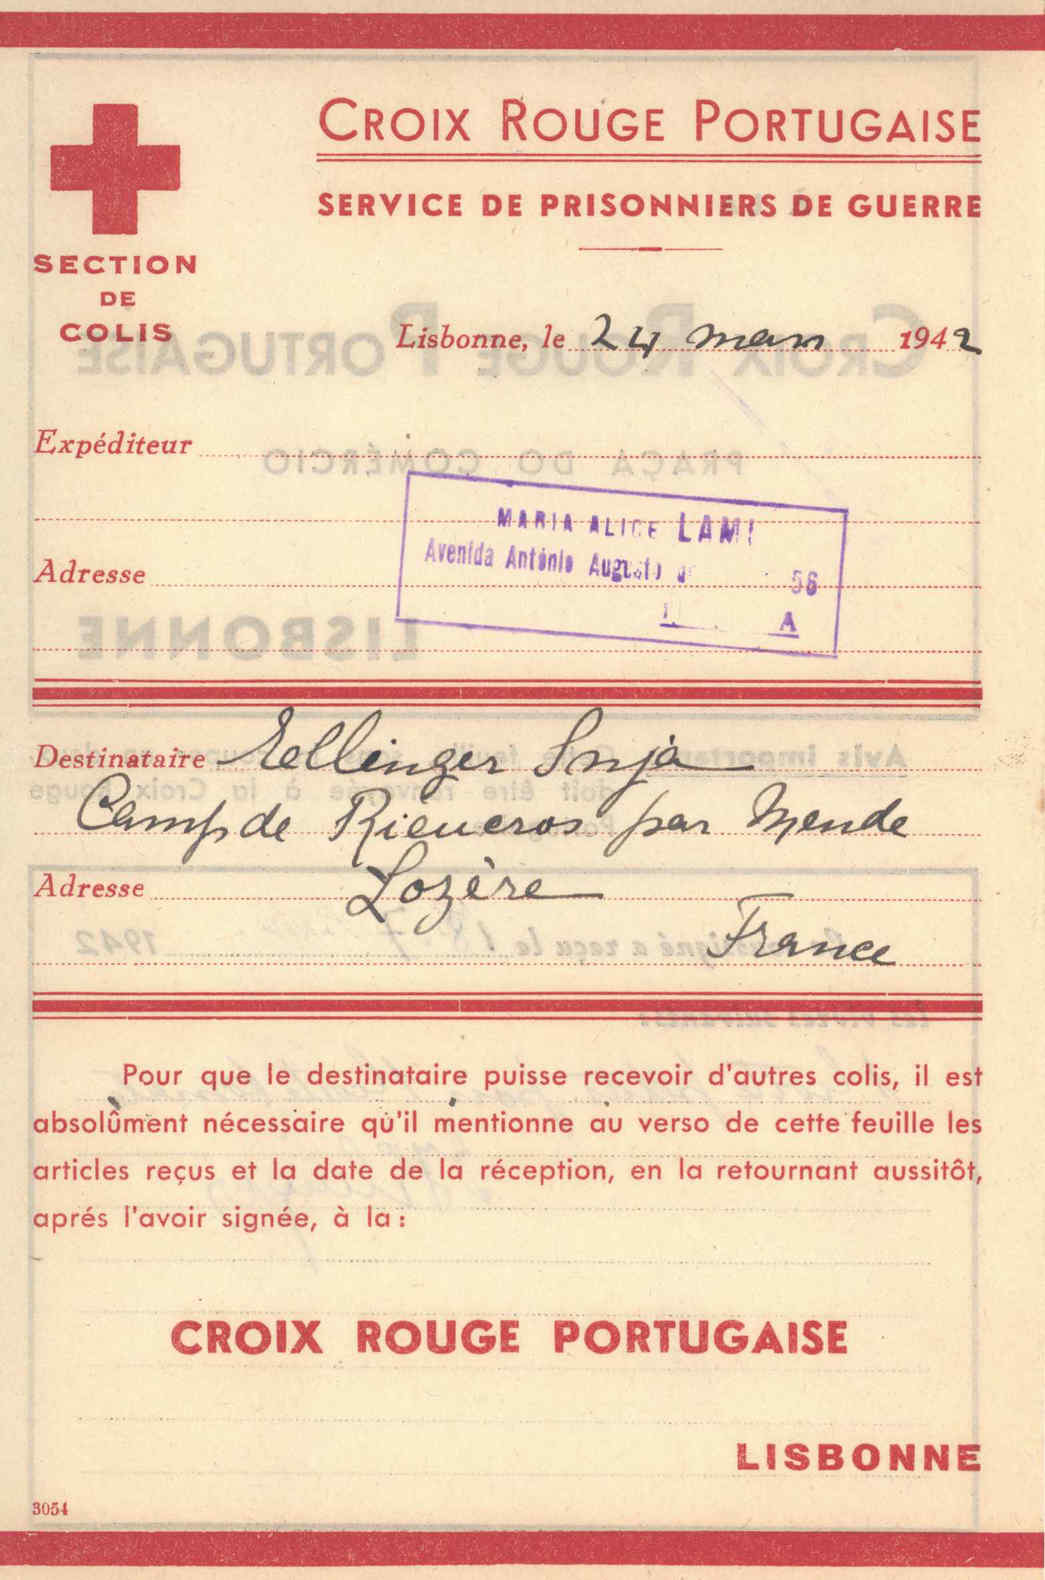 CROIX ROUGE PORTUGAISE
SERVICE DE PRISONNIERS DE GUERRE
SECTION
DE
COLIS
Lisbonne, le 24 mars 1942
Expéditeur
MARIA ALICE LAMI
Avenida António Augusto de 56
A
Adresse
Destinataire Eellinger Snja
Camp de Rieucros par Mende
Adresse Lozère
France
Pour que le destinataire puisse recevoir d'autres colis, il est
absolûment nécessaire qu'il mentionne au verso de cette feuille les
articles reçus et la date de la réception, en la retournant aussitôt,
aprés l'avoir signée, à la:
CROIX ROUGE PORTUGAISE
LISBONNE
3054